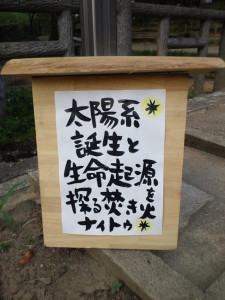 太陽系
誕生と
生命起源を
探る焚き火
ナイトゥ